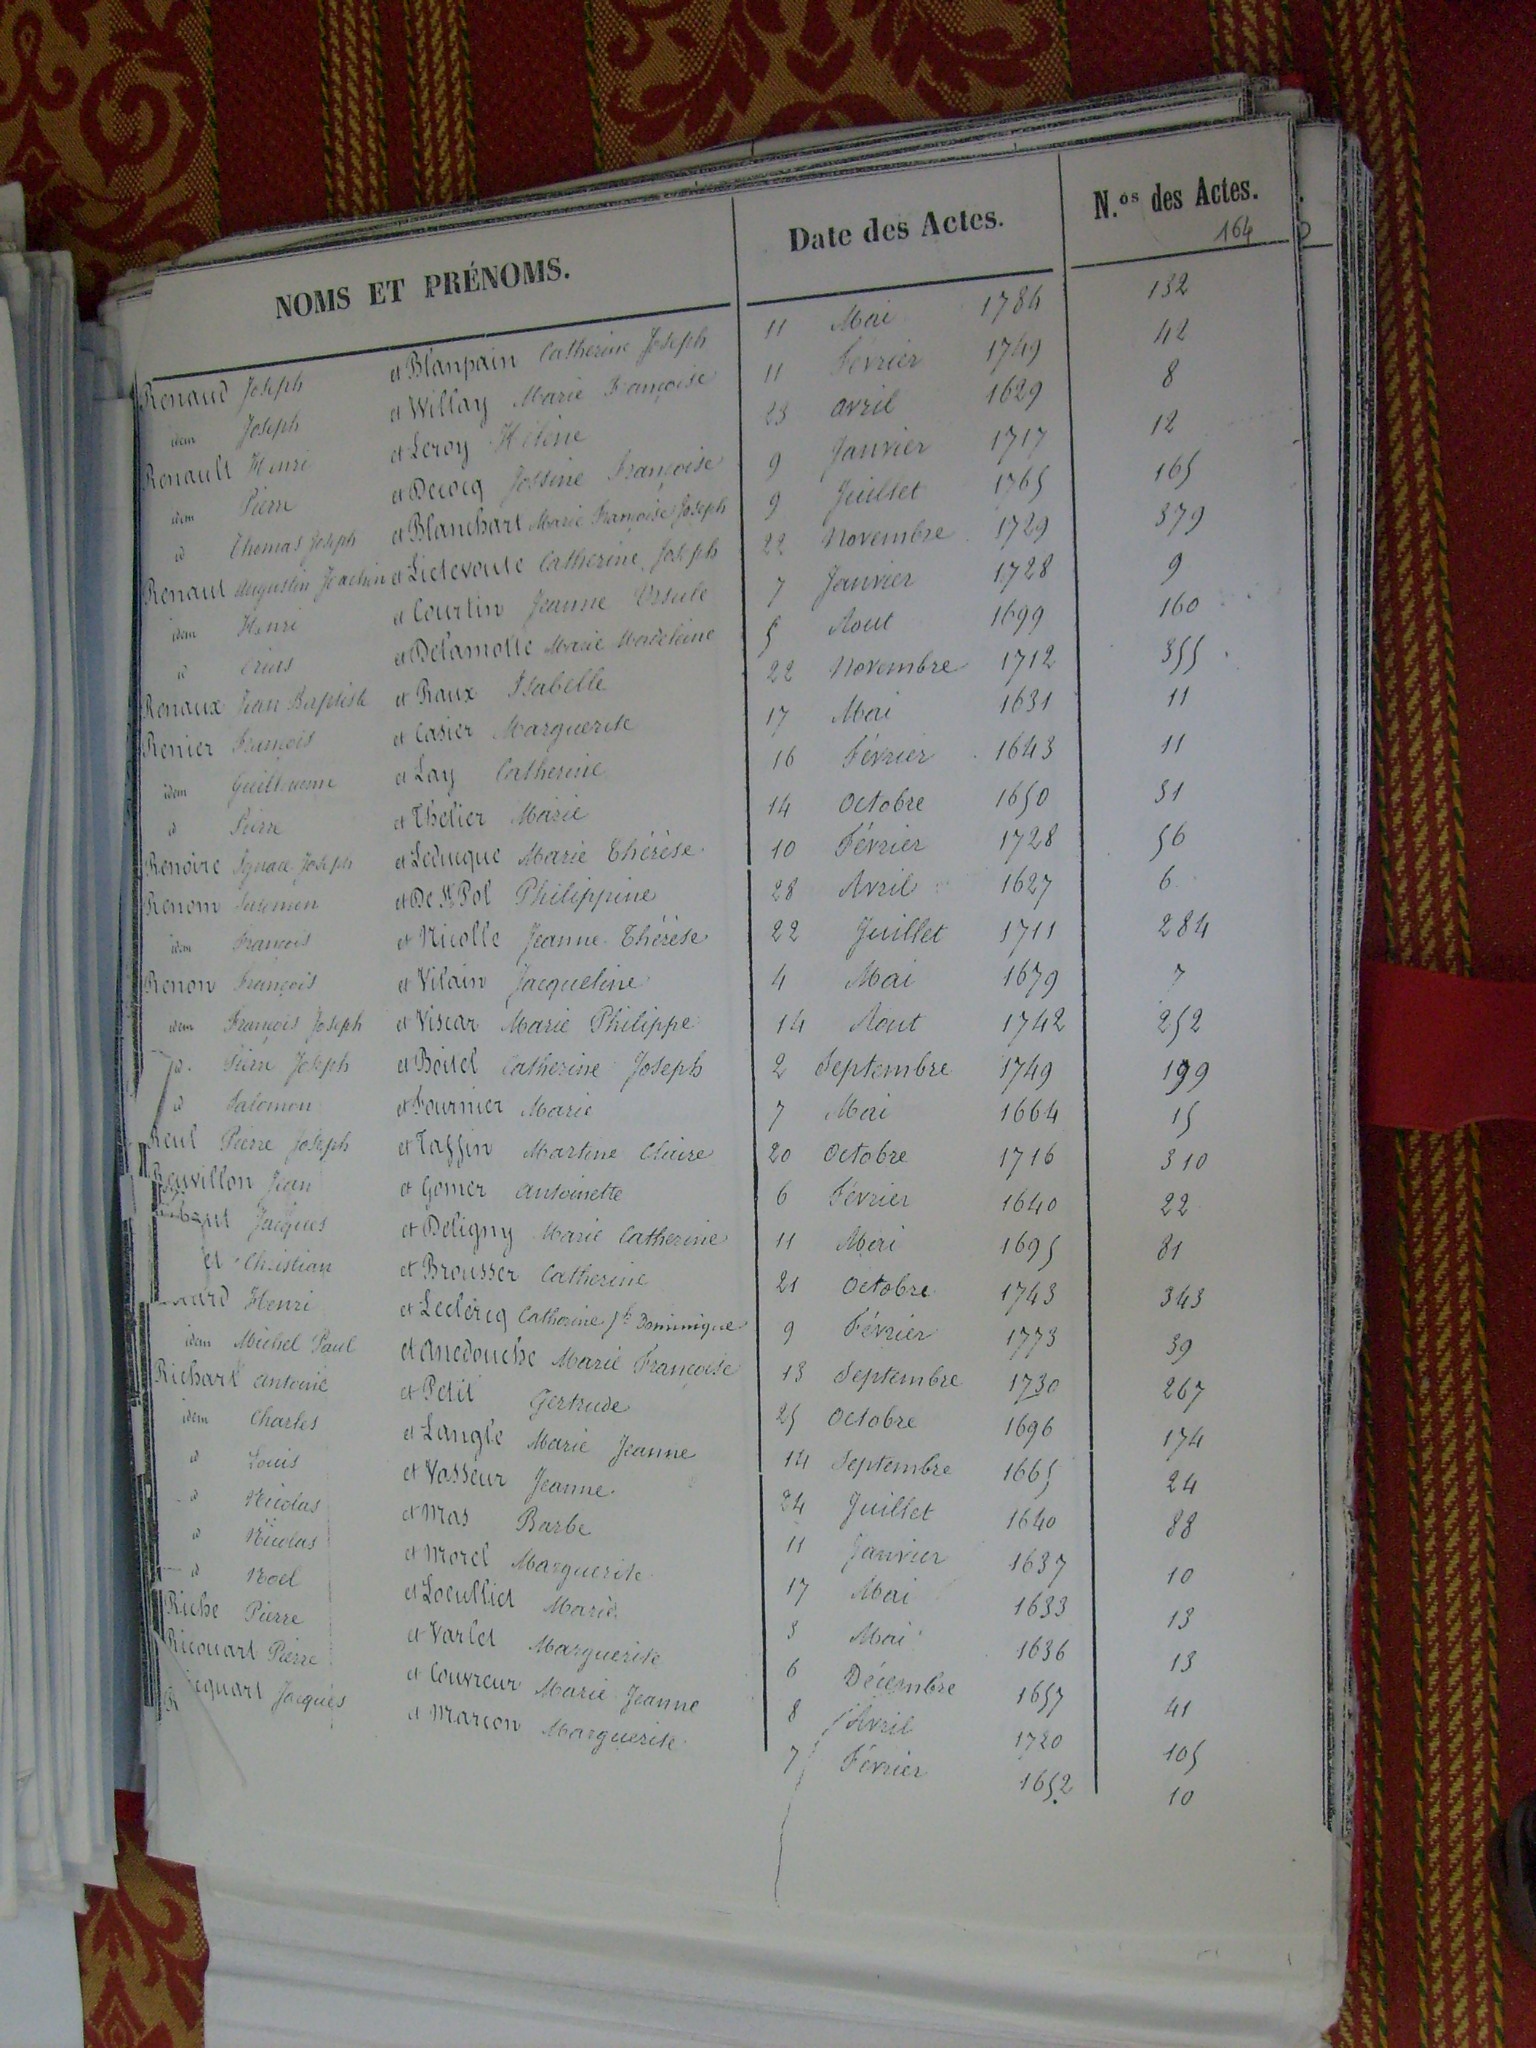 NOMS ET PRÉNOMS. Date des Actes. N.os des Actes.
164
Renaud Joseph et Blanpain Catherine Joseph 11 Mai 1784 132
idem Joseph et Willay Marie Françoise 11 Février 1749 42
Renault Henri et Leroy Hélène 23 avril 1629 8
idem Pierre et Decocq Jossine Françoise 9 Janvier 1717 12
id Thomas Joseph et Blanchart Marie Françoise Joseph 9 Juillet 1765 165
Renaut Augustin Joachim et Lietevoute Catherine Joseph 22 Novembre 1729 379
idem Henri et Courtin Jeanne Ursule 7 Janvier 1728 9
id et Delamotte Marie Madeleine 5 Aout 1699 160
Renaux Jean Baptiste et Raux Isabelle 22 Novembre 1712 355
Renier François et Casier Marguerite 17 Mai 1631 11
idem Guillaume et Lay Catherine 16 Février 1643 11
id Pierre et Thelier Marie 14 Octobre 1650 31
Renoire Ignace Joseph et Leducque Marie Thérèse 10 Février 1728 56
Renom et De St Pol Philippine 28 Avril 1627 6
idem François et Nicolle Jeanne Thérèse 22 Juillet 1711 284
Renon François et Vilain Jacqueline 4 Mai 1679 7
idem François Joseph et Viscar Marie Philippe 14 Aout 1742 252
id. Pierre Joseph et Boitel Catherine Joseph 2 Septembre 1749 199
id Salomon et Fournier Marie 7 Mai 1664 15
Reul Pierre Joseph et Taffin Martine Claire 20 Octobre 1716 310
Reuvillon Jean et Gomer Antoinette 6 Février 1640 22
Jacques et Deligny Marie Catherine 11 Mai 1695 81
et Christian et Brousser Catherine 21 Octobre 1743 343
ard Henri et Leclercq Catherine Jh Dominique 9 Février 1773 39
idem Michel Paul et Anedouche Marie Françoise 13 Septembre 1730 267
Richart Antoine et Petit Gertrude 25 Octobre 1696 174
idem Charles et Langle Marie Jeanne 14 Septembre 1665 24
id Louis et Vasseur Jeanne 24 Juillet 1640 88
id Nicolas et Mas Barbe 11 Janvier 1637 10
id Nicolas et Morel Marguerite 17 Mai 1633 13
id Noel et Loeulliet Marie 3 Mai 1636 13
Riche Pierre et Varlet Marguerite 6 Décembre 1657 41
Ricouart Pierre et Couvreur Marie Jeanne 8 Avril 1720 105
Ricquart Jacques et Marcon Marguerite 7 Février 1652 10